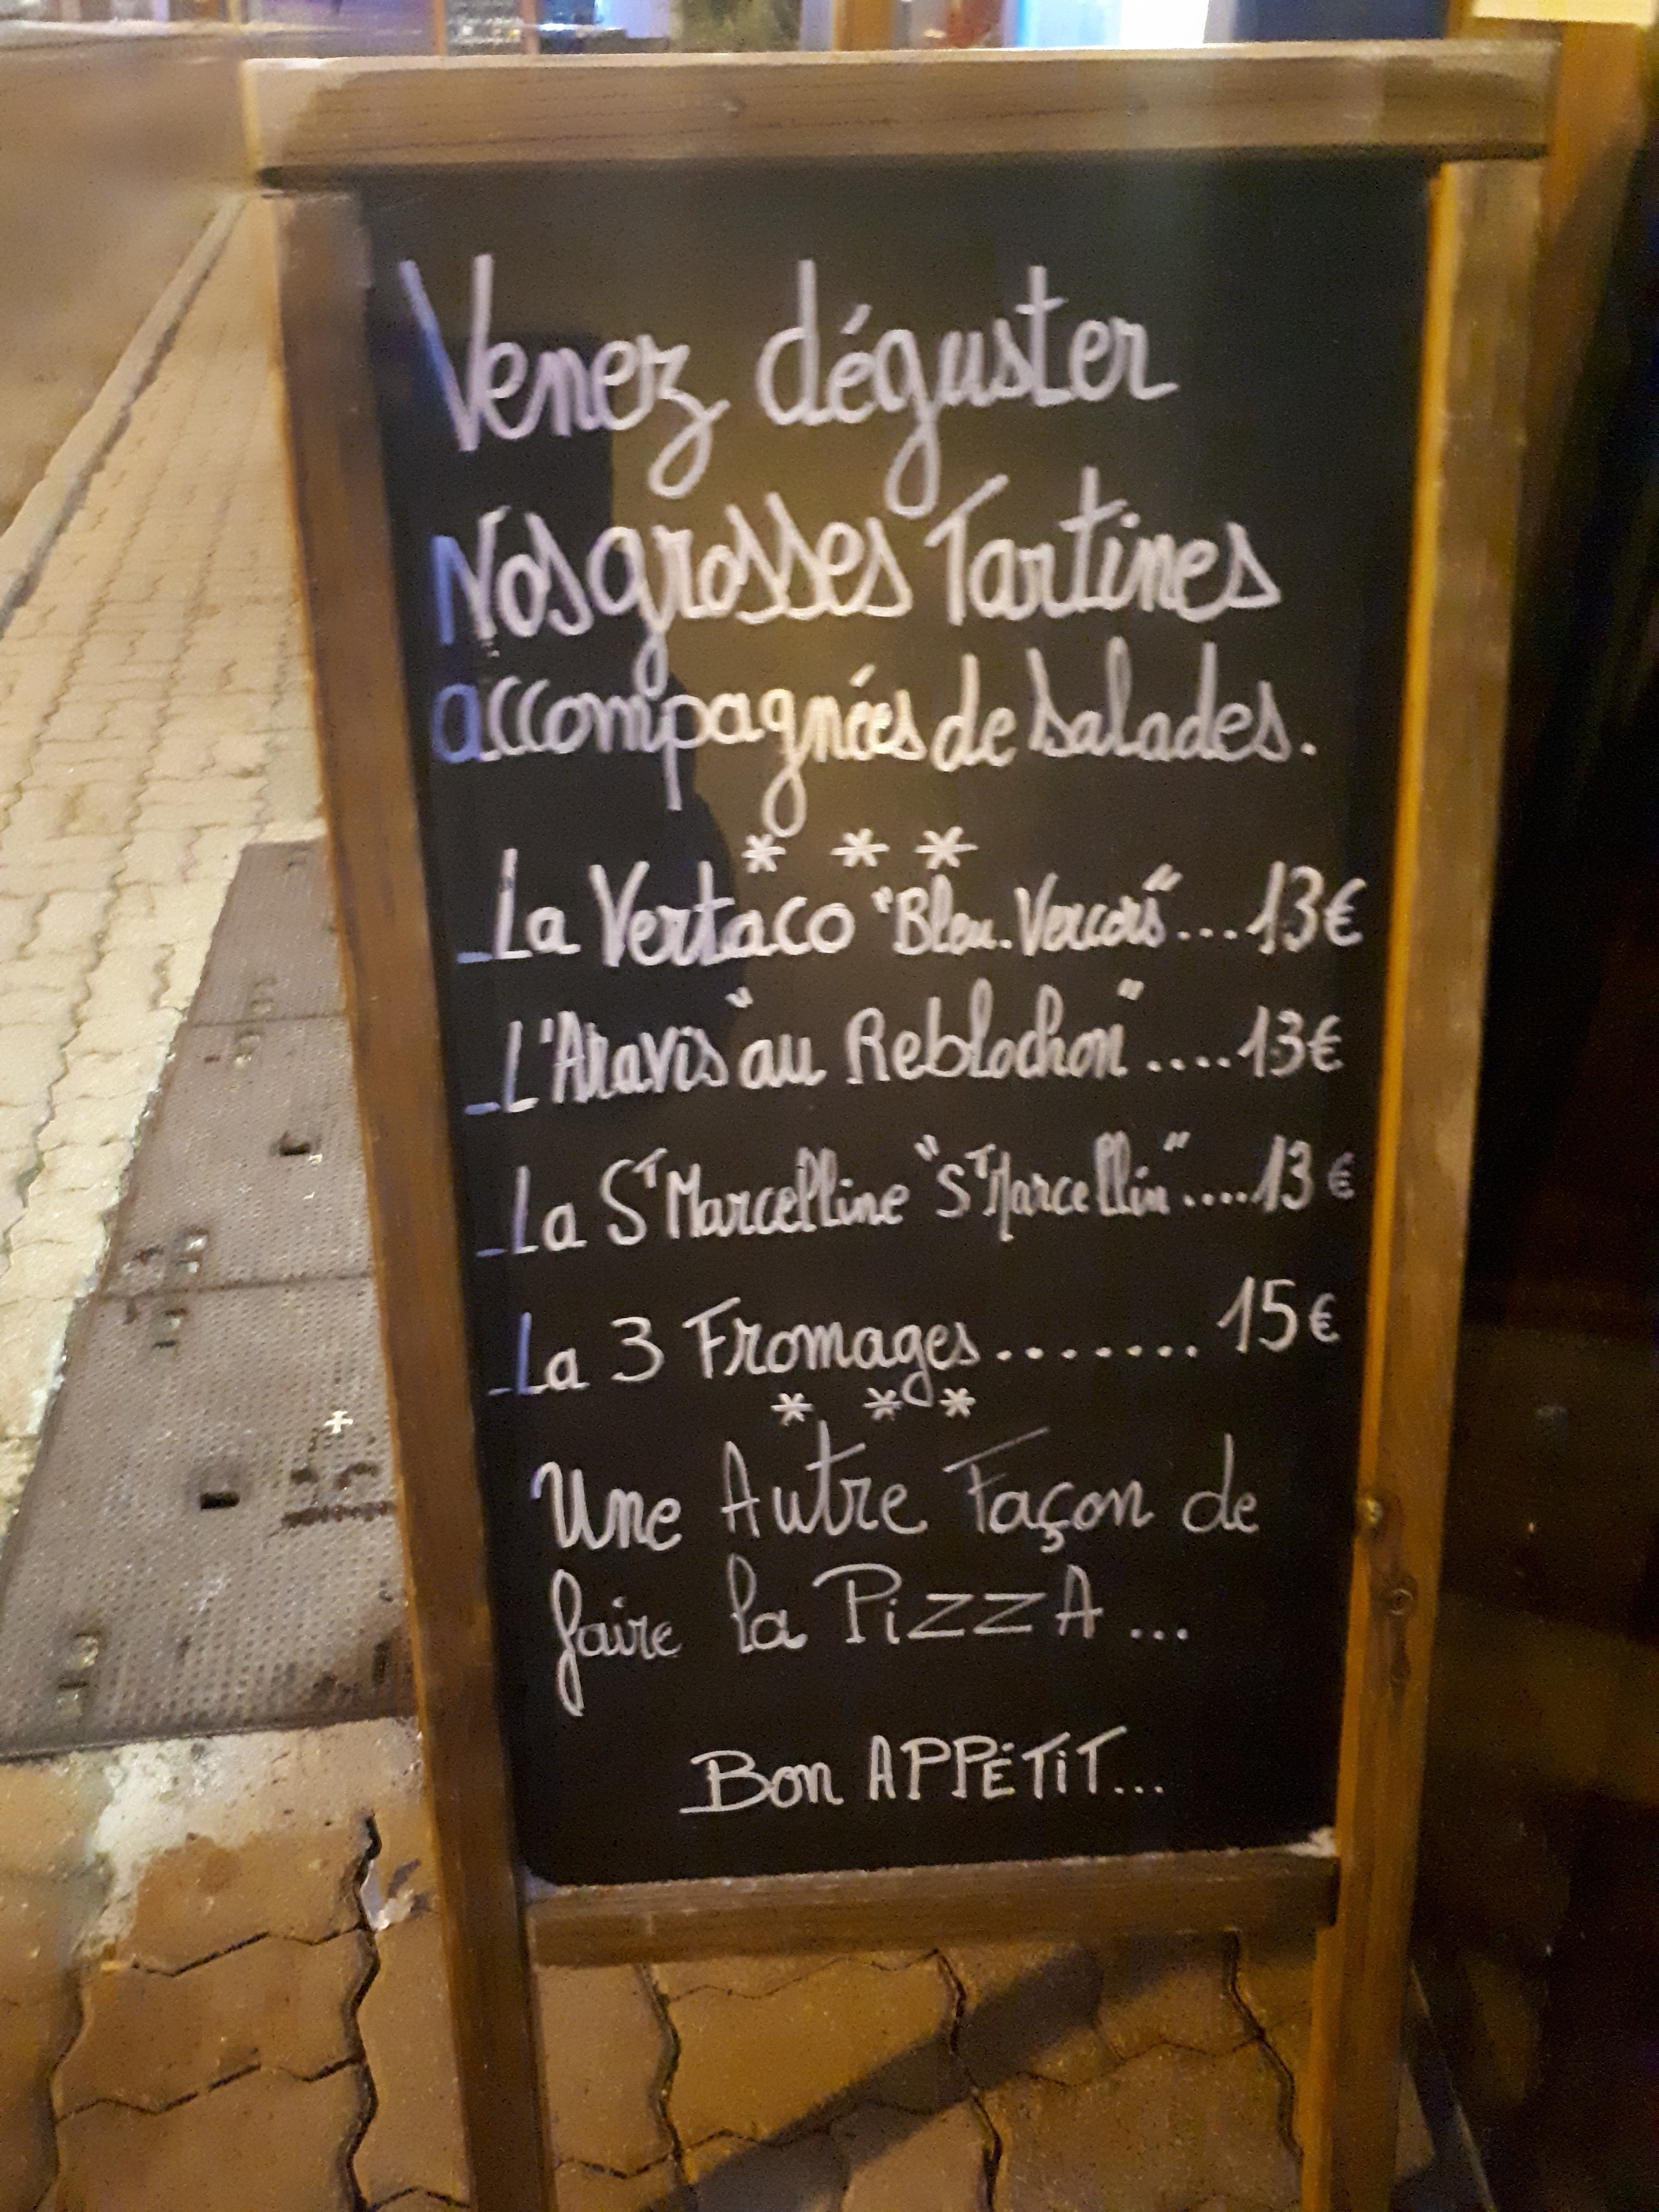 Venez déguster
Nos grosses Tartines
accompagnées de salades.
* * *
_La Vertaco "Bleu. Vercors"...13€
_L'Aravis "au Reblochon"....13€
_La ST Marcelline "ST Marcellin"....13€
_La 3 Fromages........15€
* * *
Une Autre Façon de
faire la PiZZA...
Bon APPÉTiT...